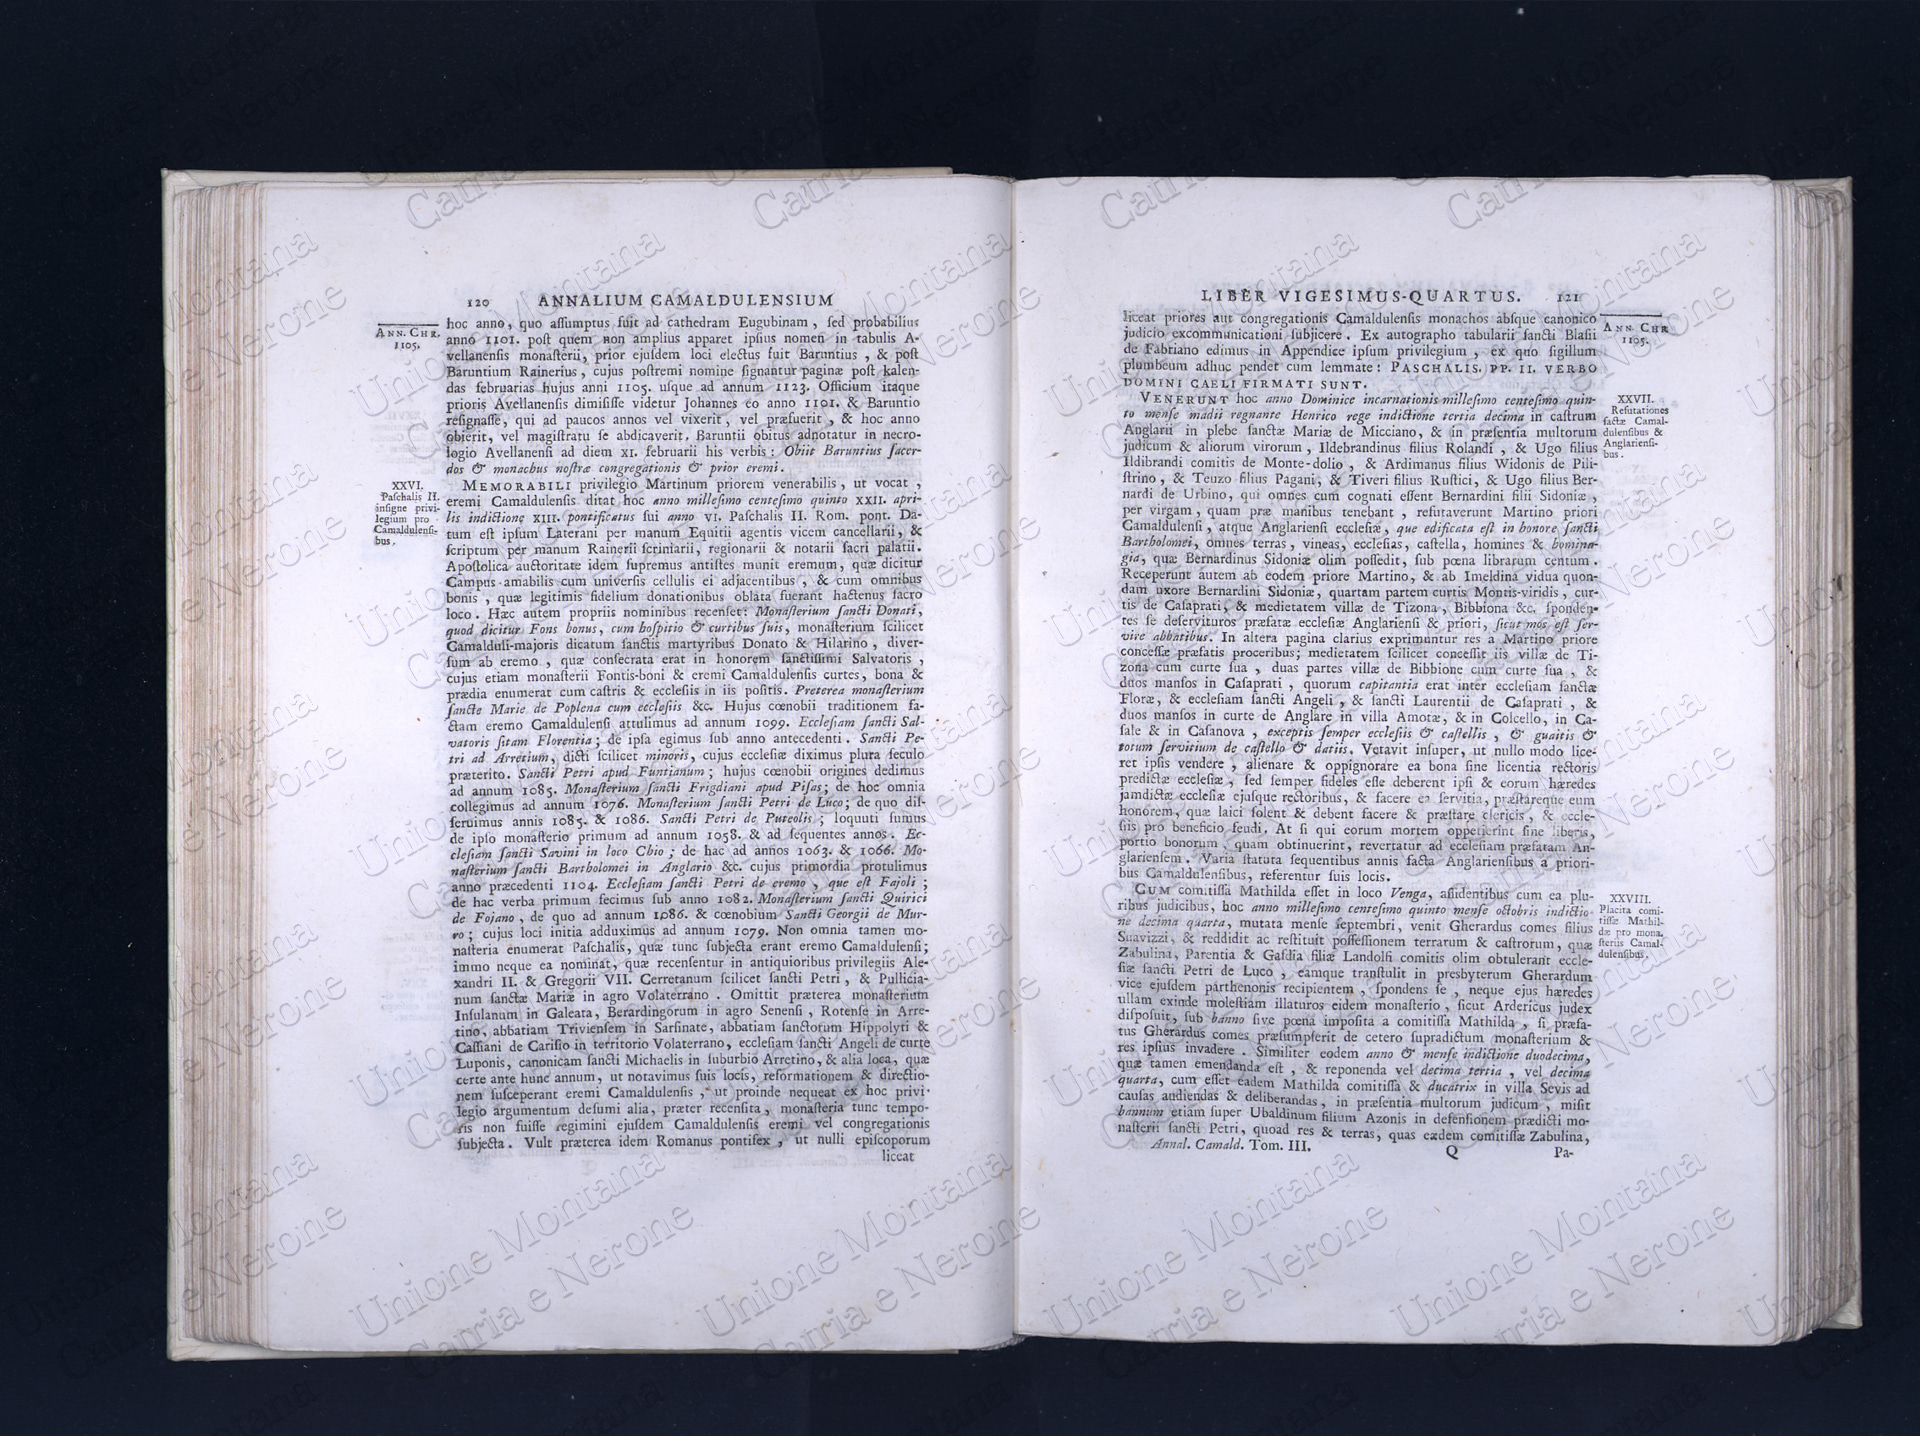 120 ANNALIUM CAMALDULENSIUM
ANN. CHR.
1105.
hoc anno, quo aſſumptus fuit ad cathedram Eugubinam, ſed probabilius
anno 1101. poſt quem non amplius apparet ipſius nomen in tabulis A-
vellanenſis monaſterii, prior ejuſdem loci electus fuit Baruntius, & poſt
Baruntium Rainerius, cujus poſtremi nomine ſignantur paginæ poſt kalen-
das februarias hujus anni 1105. uſque ad annum 1123. Officium itaque
prioris Avellanenſis dimiſiſſe videtur Johannes eo anno 1101. & Baruntio
reſignaſſe, qui ad paucos annos vel vixerit, vel præfuerit, & hoc anno
obierit, vel magiſtratu ſe abdicaverit. Baruntii obitus adnotatur in necro-
logio Avellanenſi ad diem XI. februarii his verbis: Obiit Baruntius ſacer-
dos & monachus noſtræ congregationis & prior eremi.
XXVI.
Paſchalis II.
inſigne privi-
legium pro
Camaldulenſi-
bus.
MEMORABILI privilegio Martinum priorem venerabilis, ut vocat,
eremi Camaldulenſis ditat hoc anno milleſimo centeſimo quinto XXII. apri-
lis indictione XIII. pontificatus ſui anno VI. Paſchalis II. Rom. pont. Da-
tum eſt ipſum Laterani per manum Equitii agentis vicem cancellarii, &
ſcriptum per manum Rainerii ſcriniarii, regionarii & notarii ſacri palatii.
Apoſtolica auctoritate idem ſupremus antiſtes munit eremum, quæ dicitur
Campus-amabilis cum univerſis cellulis ei adjacentibus, & cum omnibus
bonis, quæ legitimis fidelium donationibus oblata fuerant hactenus ſacro
loco. Hæc autem propriis nominibus recenſet: Monaſterium ſancti Donati,
quod dicitur Fons bonus, cum hoſpitio & curtibus ſuis, monaſterium ſcilicet
Camalduli-majoris dicatum ſanctis martyribus Donato & Hilarino, diver-
ſum ab eremo, quæ conſecrata erat in honorem ſanctiſſimi Salvatoris,
cujus etiam monaſterii Fontis-boni & eremi Camaldulenſis curtes, bona &
prædia enumerat cum caſtris & eccleſiis in iis poſitis. Preterea monaſterium
ſancte Marie de Poplena cum eccleſiis &c. Hujus cœnobii traditionem fa-
ctam eremo Camaldulenſi attulimus ad annum 1099. Eccleſiam ſancti Sal-
vatoris ſitam Florentia; de ipſa egimus ſub anno antecedenti. Sancti Pe-
tri ad Arretium, dicti ſcilicet minoris, cujus eccleſiæ diximus plura ſeculo
præterito. Sancti Petri apud Funtianum; hujus cœnobii origines dedimus
ad annum 1085. Monaſterium ſancti Frigdiani apud Piſas; de hoc omnia
collegimus ad annum 1076. Monaſterium ſancti Petri de Luco; de quo diſ-
ſeruimus annis 1085. & 1086. Sancti Petri de Puteolis; loquuti ſumus
de ipſo monaſterio primum ad annum 1058. & ad ſequentes annos. Ec-
cleſiam ſancti Savini in loco Chio; de hac ad annos 1063. & 1066. Mo-
naſterium ſancti Bartholomei in Anglario &c. cujus primordia protulimus
anno præcedenti 1104. Eccleſiam ſancti Petri de eremo, que eſt Fajoli;
de hac verba primum fecimus ſub anno 1082. Monaſterium ſancti Quirici
de Fojano, de quo ad annum 1086. & cœnobium Sancti Georgii de Mur-
ro; cujus loci initia adduximus ad annum 1079. Non omnia tamen mo-
naſteria enumerat Paſchalis, quæ tunc ſubjecta erant eremo Camaldulenſi;
immo neque ea nominat, quæ recenſentur in antiquioribus privilegiis Ale-
xandri II. & Gregorii VII. Cerretanum ſcilicet ſancti Petri, & Pullicia-
num ſanctæ Mariæ in agro Volaterrano. Omittit præterea monaſterium
Inſulanum in Galeata, Berardingorum in agro Senenſi, Rotenſe in Arre-
tino, abbatiam Trivienſem in Sarſinate, abbatiam ſanctorum Hippolyti &
Caſſiani de Cariſio in territorio Volaterrano, eccleſiam ſancti Angeli de curte
Luponis, canonicam ſancti Michaelis in ſuburbio Arretino, & alia loca, quæ
certe ante hunc annum, ut notavimus ſuis locis, reformationem & directio-
nem ſuſceperant eremi Camaldulenſis, ut proinde nequeat ex hoc privi-
legio argumentum deſumi alia, præter recenſita, monaſteria tunc tempo-
ris non fuiſſe regimini ejuſdem Camaldulenſis eremi vel congregationis
ſubjecta. Vult præterea idem Romanus pontifex, ut nulli epiſcoporum
liceat
LIBER VIGESIMUS-QUARTUS. 121
ANN. CHR
1105.
liceat priores aut congregationis Camaldulenſis monachos abſque canonico
judicio excommunicationi ſubjicere. Ex autographo tabularii ſancti Blaſii
de Fabriano edimus in Appendice ipſum privilegium, ex quo ſigillum
plumbeum adhuc pendet cum lemmate: PASCHALIS. PP. II. VERBO
DOMINI CAELI FIRMATI SUNT.
XXVII.
Refutationes
factæ Camal-
dulenſibus &
Anglarienſi-
bus.
VENERUNT hoc anno Dominice incarnationis milleſimo centeſimo quin-
to menſe madii regnante Henrico rege indictione tertia decima in caſtrum
Anglarii in plebe ſanctæ Mariæ de Micciano, & in præſentia multorum
judicum & aliorum virorum, Ildebrandinus filius Rolandi, & Ugo filius
Ildibrandi comitis de Monte-dolio, & Ardimanus filius Widonis de Pili-
ſtrino, & Teuzo filius Pagani, & Tiveri filius Ruſtici, & Ugo filius Ber-
nardi de Urbino, qui omnes cum cognati eſſent Bernardini filii Sidoniæ,
per virgam, quam præ manibus tenebant, refutaverunt Martino priori
Camaldulenſi, atque Anglarienſi eccleſiæ, que edificata eſt in honore ſancti
Bartholomei, omnes terras, vineas, eccleſias, caſtella, homines & homina-
gia, quæ Bernardinus Sidoniæ olim poſſedit, ſub pœna librarum centum.
Receperunt autem ab eodem priore Martino, & ab Imeldina vidua quon-
dam uxore Bernardini Sidoniæ, quartam partem curtis Montis-viridis, cur-
tis de Caſaprati, & medietatem villæ de Tizona, Bibbiona &c. ſponden-
tes ſe deſervituros præfatæ eccleſiæ Anglarienſi & priori, ſicut mos eſt ſer-
vire abbatibus. In altera pagina clarius exprimuntur res a Martino priore
conceſſæ præfatis proceribus; medietatem ſcilicet conceſſit iis villæ de Ti-
zona cum curte ſua, duas partes villæ de Bibbione cum curte ſua, &
duos manſos in Caſaprati, quorum capitantia erat inter eccleſiam ſanctæ
Floræ, & eccleſiam ſancti Angeli, & ſancti Laurentii de Caſaprati, &
duos manſos in curte de Anglare in villa Amotæ, & in Colcello, in Ca-
ſale & in Caſanova, exceptis ſemper eccleſiis & caſtellis, & guaitis &
totum ſervitium de caſtello & datiis. Vetavit inſuper, ut nullo modo lice-
ret ipſis vendere, alienare & oppignorare ea bona ſine licentia rectoris
predictæ eccleſiæ, ſed ſemper fideles eſſe deberent ipſi & eorum hæredes
jamdictæ eccleſiæ ejuſque rectoribus, & facere ea ſervitia, præſtareque eum
honorem, quæ laici ſolent & debent facere & præſtare clericis, & eccle-
ſiis pro beneficio feudi. At ſi qui eorum mortem oppetierint ſine liberis,
portio bonorum, quam obtinuerint, revertatur ad eccleſiam præfatam An-
glarienſem. Varia ſtatuta ſequentibus annis facta Anglarienſibus a priori-
bus Camaldulenſibus, referentur ſuis locis.
XXVIII.
Placita comi-
tiſſæ Mathil-
dæ pro mona-
ſteriis Camal-
dulenſibus.
CUM comitiſſa Mathilda eſſet in loco Venga, aſſidentibus cum ea plu-
ribus judicibus, hoc anno milleſimo centeſimo quinto menſe octobris indictio-
ne decima quarta, mutata menſe ſeptembri, venit Gherardus comes filius
Suavizzi, & reddidit ac reſtituit poſſeſſionem terrarum & caſtrorum, quæ
Zabulina, Parentia & Gaſdia filiæ Landolfi comitis olim obtulerant eccle-
ſiæ ſancti Petri de Luco, eamque tranſtulit in presbyterum Gherardum
vice ejuſdem parthenonis recipientem, ſpondens ſe, neque ejus hæredes
ullam exinde moleſtiam illaturos eidem monaſterio, ſicut Ardericus judex
diſpoſuit, ſub banno ſive pœna impoſita a comitiſſa Mathilda, ſi præfa-
tus Gherardus comes præſumpſerit de cetero ſupradictum monaſterium &
res ipſius invadere. Similiter eodem anno & menſe indictione duodecima,
quæ tamen emendanda eſt, & reponenda vel decima tertia, vel decima
quarta, cum eſſet eadem Mathilda comitiſſa & ducatrix in villa Sevis ad
cauſas audiendas & deliberandas, in præſentia multorum judicum, miſit
bannum etiam ſuper Ubaldinum filium Azonis in defenſionem prædicti mo-
naſterii ſancti Petri, quoad res & terras, quas eædem comitiſſæ Zabulina,
Annal. Camald. Tom. III. Q Pa-